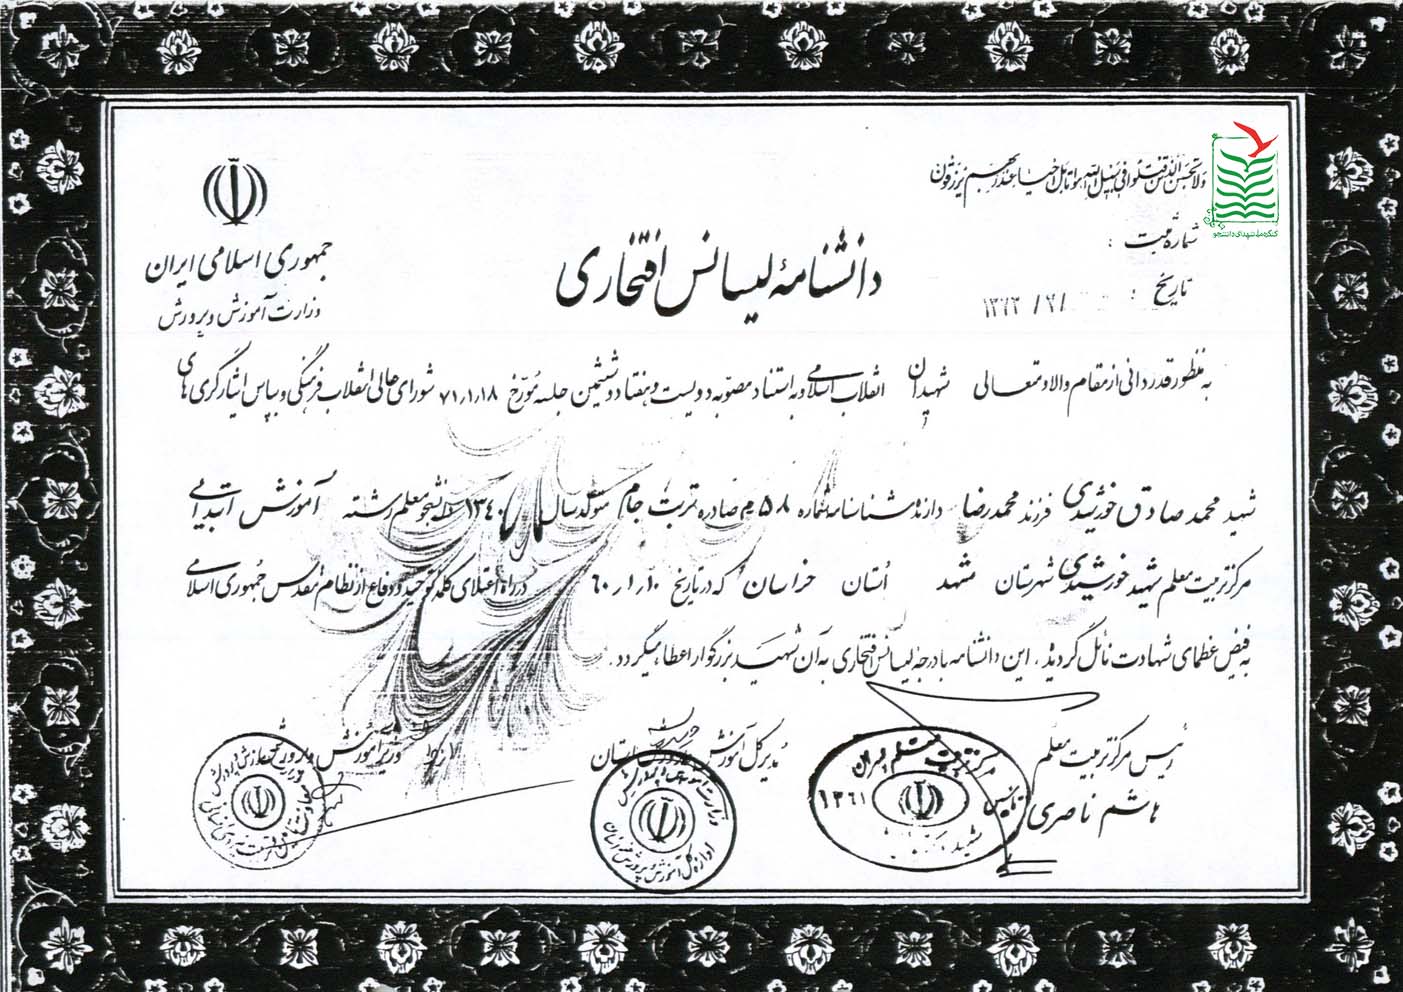 ولا تحسبن الذین قتلوا فی سبیل الله امواتا بل احیاء عند ربهم یرزقون
کنگره ملی شهدای دانشجو
شماره ثبت :
تاریخ :
جمهوری اسلامی ایران
وزارت آموزش و پرورش
دانشنامهٔ لیسانس افتخاری
به منظور قدردانی از مقام والا و متعالی شهیدان انقلاب اسلامی و به استناد مصوبه دویست و هفتاد و ششمین جلسه مورخ ۷۱٫۱٫۱۸ شورای عالی انقلاب فرهنگی و بپاس ایثارگری های
شهید محمد صادق خورشیدی فرزند محمدرضا دارنده شناسنامه شماره ۵۸ صادره تربت جام متولد سال ۱۳۴۰ دانشجو معلم رشته آموزش ابتدایی
مرکز تربیت معلم شهید خورشیدی شهرستان مشهد استان خراسان که در تاریخ ۶۰٫۱٫۱۰ در راه اعتلای کلمه توحید و دفاع از نظام مقدس جمهوری اسلامی
به فیض عظمای شهادت نائل گردید . این دانشنامه با درجه لیسانس افتخاری به آن شهید بزرگوار اعطا میگردد .
رئیس مرکز تربیت معلم
هاشم ناصری
مدیر کل آموزش و پرورش استان
وزیر آموزش و پرورش
مرکز تربیت معلم پسران
تاسیس ۱۳۶۱
اداره کل آموزش و پرورش خراسان